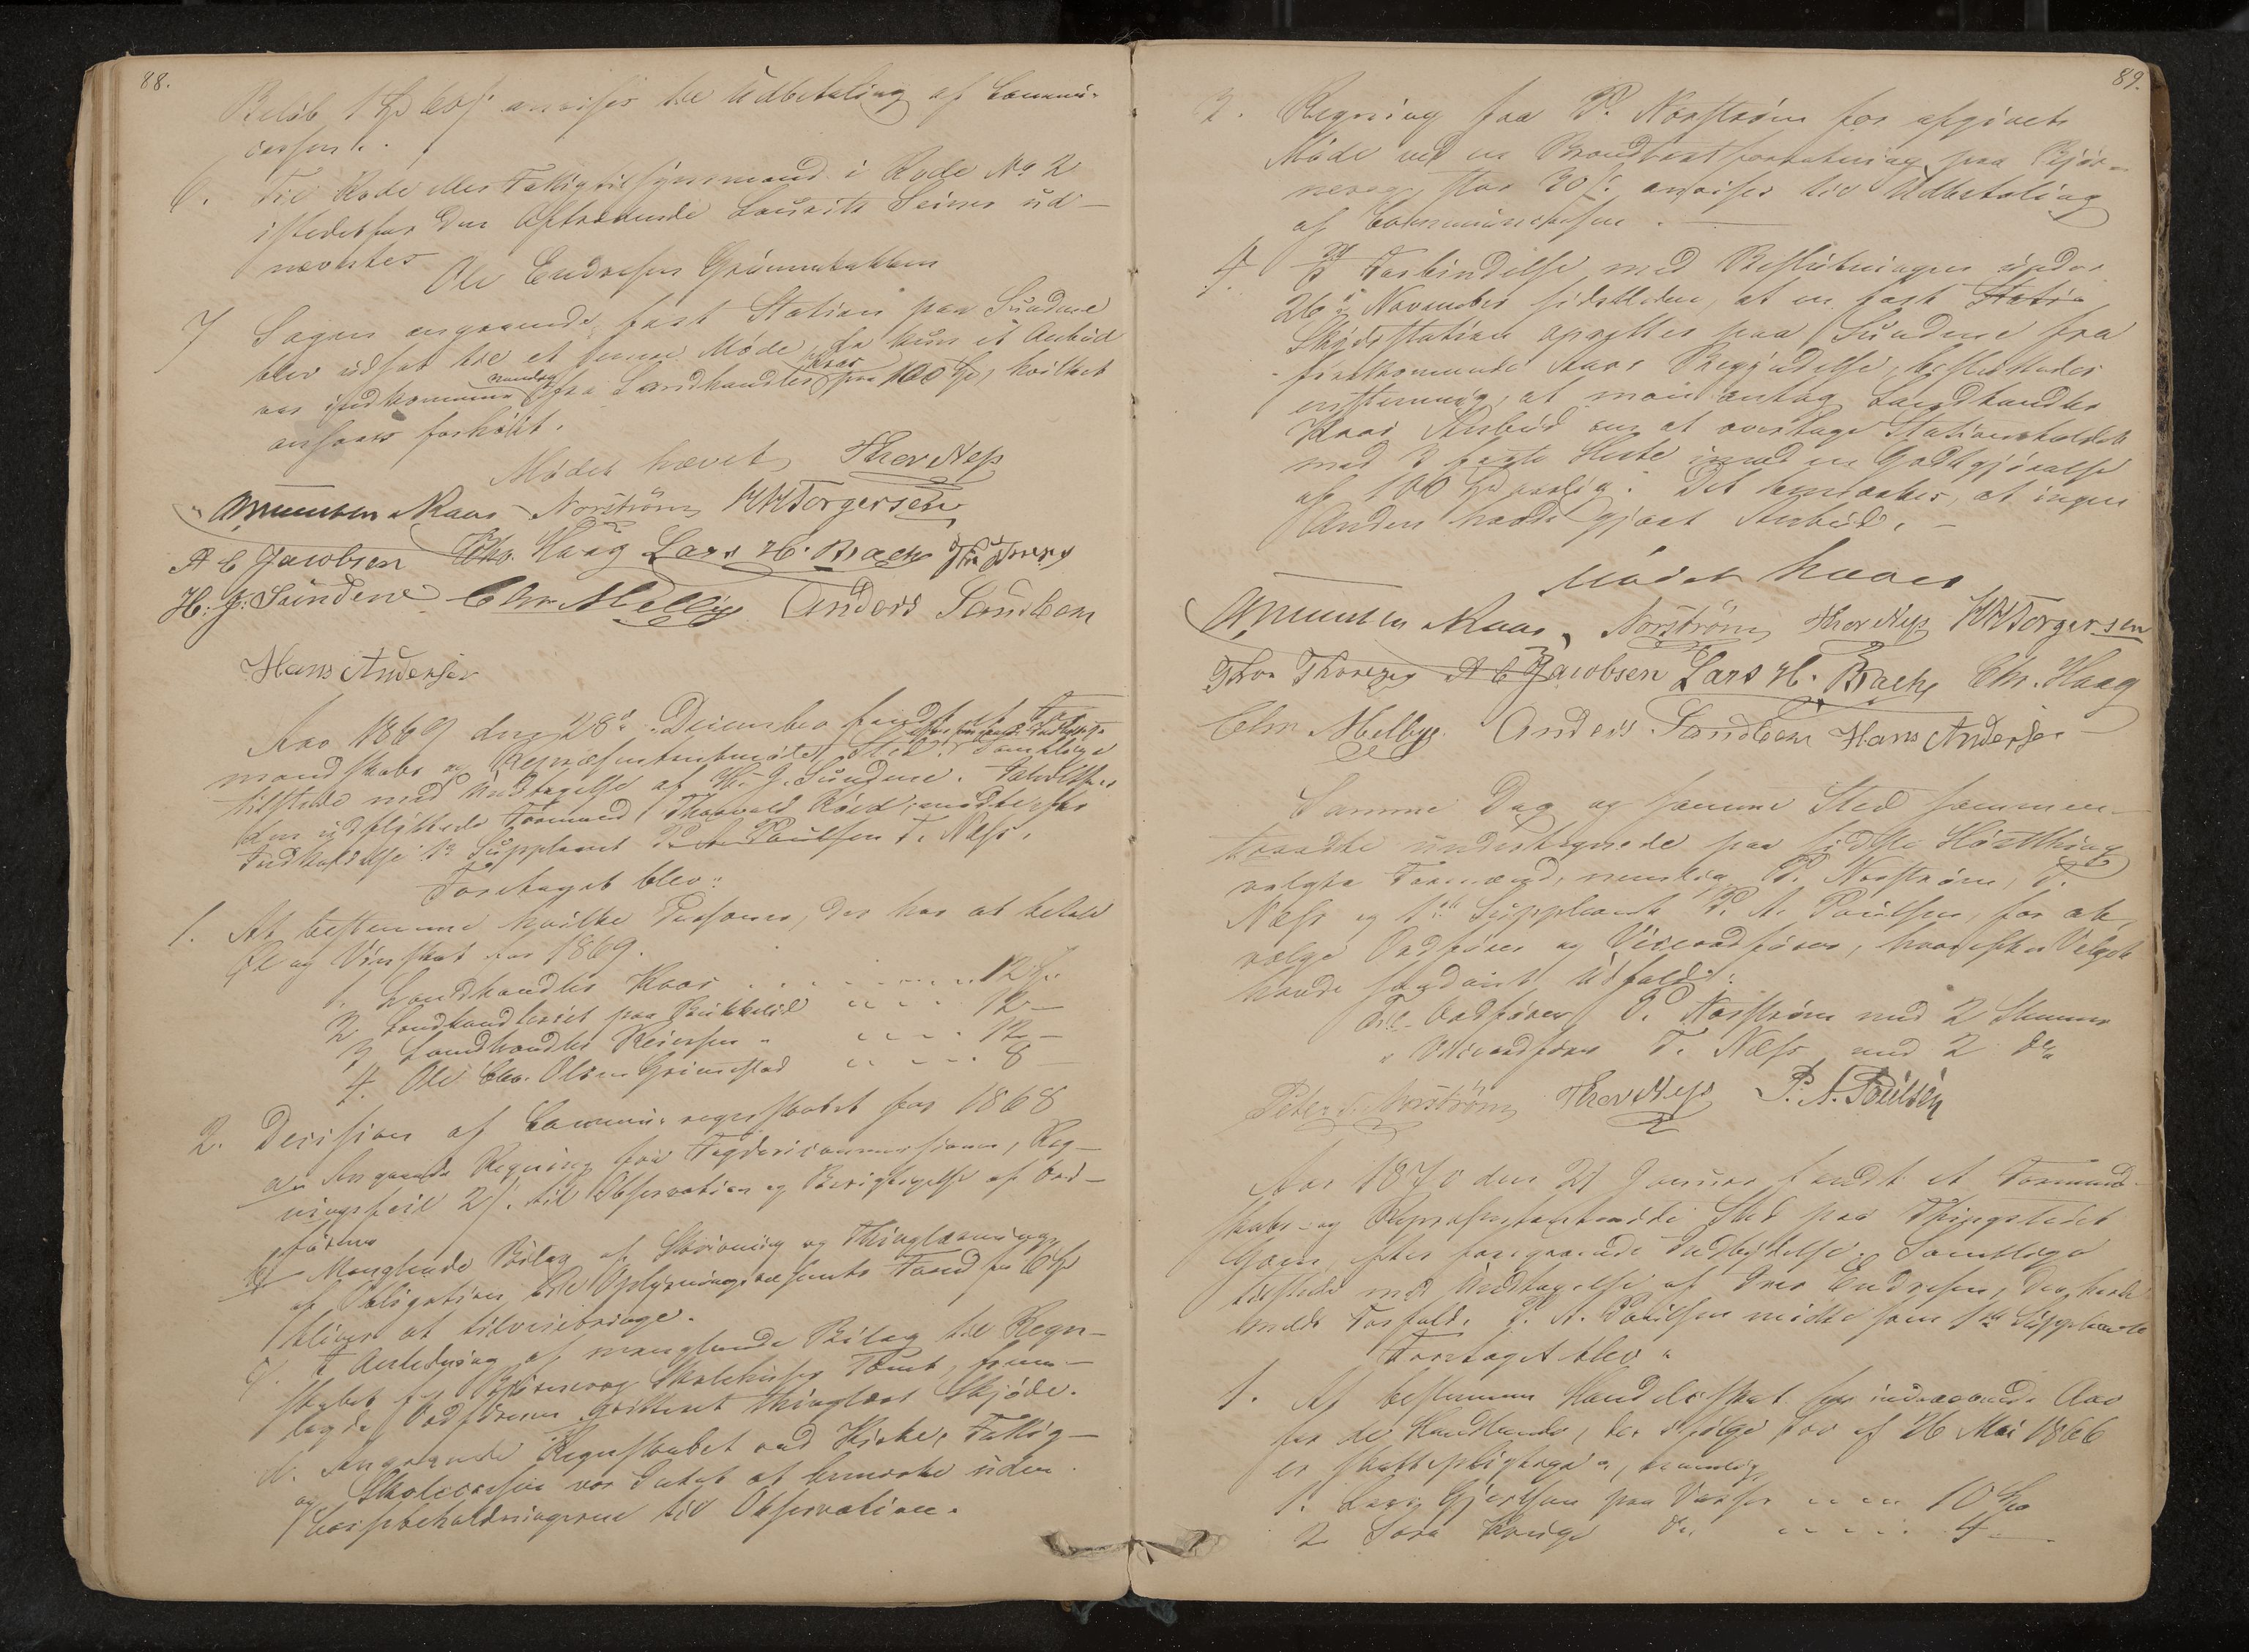 88.
Beløb 1 Spd anvises til Udbetaling af Commu-
cassen.
6. Til Rode eller Fattigtilsynsmand i Rode No 2
istedetfor den Aftrædende Laurits Seines ud-
nævntes
Ole Endresen Grønnebakken
7 Sagen angaaende fast Station paa Sundene
blev udsat til et senere Møde, da kun et Anbud
var indkommen nemlig fra Landhandler Kaas paa 100 Spd, hvilket
ansaaes forhøit.
Mødet hævet Thor Næss
Amuntsen Kaas Norström HH Torgersen
A C Jacobsen Chr. Haag Lars H. Bræck
H. J. Sundene Chr Melbye Anders Sandbem
Hans Andersen
Aar 1869 den 28de December holdtes et For-
mandskabs og Repræsentantmøde Sted. Samtlige
tilstede med Undtagelse af H. J. Sundene. Istedetfor
den udflyttede Formand Thorvald mødte efter
Indkaldelse 1ste Suppleant P. A. Paulsen T. Næss.
Foretaget blev:
1. At bestemme hvilke Personer, der har at betale
Øl og Vinskat for 1869.
1. Landhandler Kaas . . . . . . 12
2 Landhandleriet paa . . . 12 —
3 Landhandler Reiersen . . . . 12 —
4. Ole Chr. Olsen Grimstad . . . . 8 —
2. Decision af Commu- regnskabet for 1868
a. Angaaende Regning fra Reg-
ningsfeil 2 til Observation og Berigtigelse af Ord-
føreren
b. Manglende Bilag af Skrivning og Thinglæsning
af Obligation til Oplysningsvæsenets Fond
bliver at tilveiebringe.
c. I Anledning af manglende Bilag til Regn-
skabet for Skolehuses Tomt, frem-
lagde Ordføreren qvitteret thinglæst Skjøde.
d. Angaaende Regnskabet ved Kirke, Fattig-
og Skolecassen var Intet at bemærke uden
Cassebeholdningerne til Observation.
89.
3. Regning fra P. Norstrøm for afgivets
Møde ved en Brandtaxtforretning paa Bjør-
nevog, stor 30 s. anvises til Udbetaling
af Communecassen.
4. I Forbindelse med Beslutningen under
26de November sidstleden, at en fast Statio
Skydsstation oprettes paa Sundene fra
førstkommende Aars Begyndelse, besluttedes
enstemmig, at man antog Landhandler
Kaas Anbud om at overtage Stationsholdet
med 3 faste Heste imod en Godtgjørelse
af 100 Spd aarlig. Det bemærkes, at ingen
Anden havde gjort Anbud. —
Mødet hævet
Amuntsen Kaas, Norström Thor Næss HH Torgersen
Thor A C Jacobsen Lars H. Bræck, Chr. Haag
Chr Melbye. Anders Sandbem Hans Andersen
Samme Dag og samme Sted sammen-
traadte undertegnede paa sidste Høstthing
valgte Formænd, nemlig P. Norstrøm, T.
Næss og 1ste Suppleant P. A. Paulsen, for at
vælge Ordfører og Viceordfører, hvorefter Valget
havde saadant Udfald:
Til Ordfører P. Norstrøm med 2 Stemmer
" Viceordfører T. Næss med 2 do
Peter Norström Thor Næss P. A. Paulsen
Aar 1870 den 21 Januar holdt et Formand-
skabs- og Repræsentantmøde Sted paa Thingstedet
efter foregaaende Indbydelse. Samtlige
tilstede med Undtagelse af Iver Endresen, der havde
meldt Forfald. P. A. Paulsen mødte som 1ste Suppleant
Foretaget blev:
1. At bestemme Handelsskat for indeværende Aar
for de Handlende, der ifølge Lov af 26 Mai 1866
er skattepligtige, nemlig
1. Lars Gjertsen paa . . . 10 Spd
2 . . . . 4 —